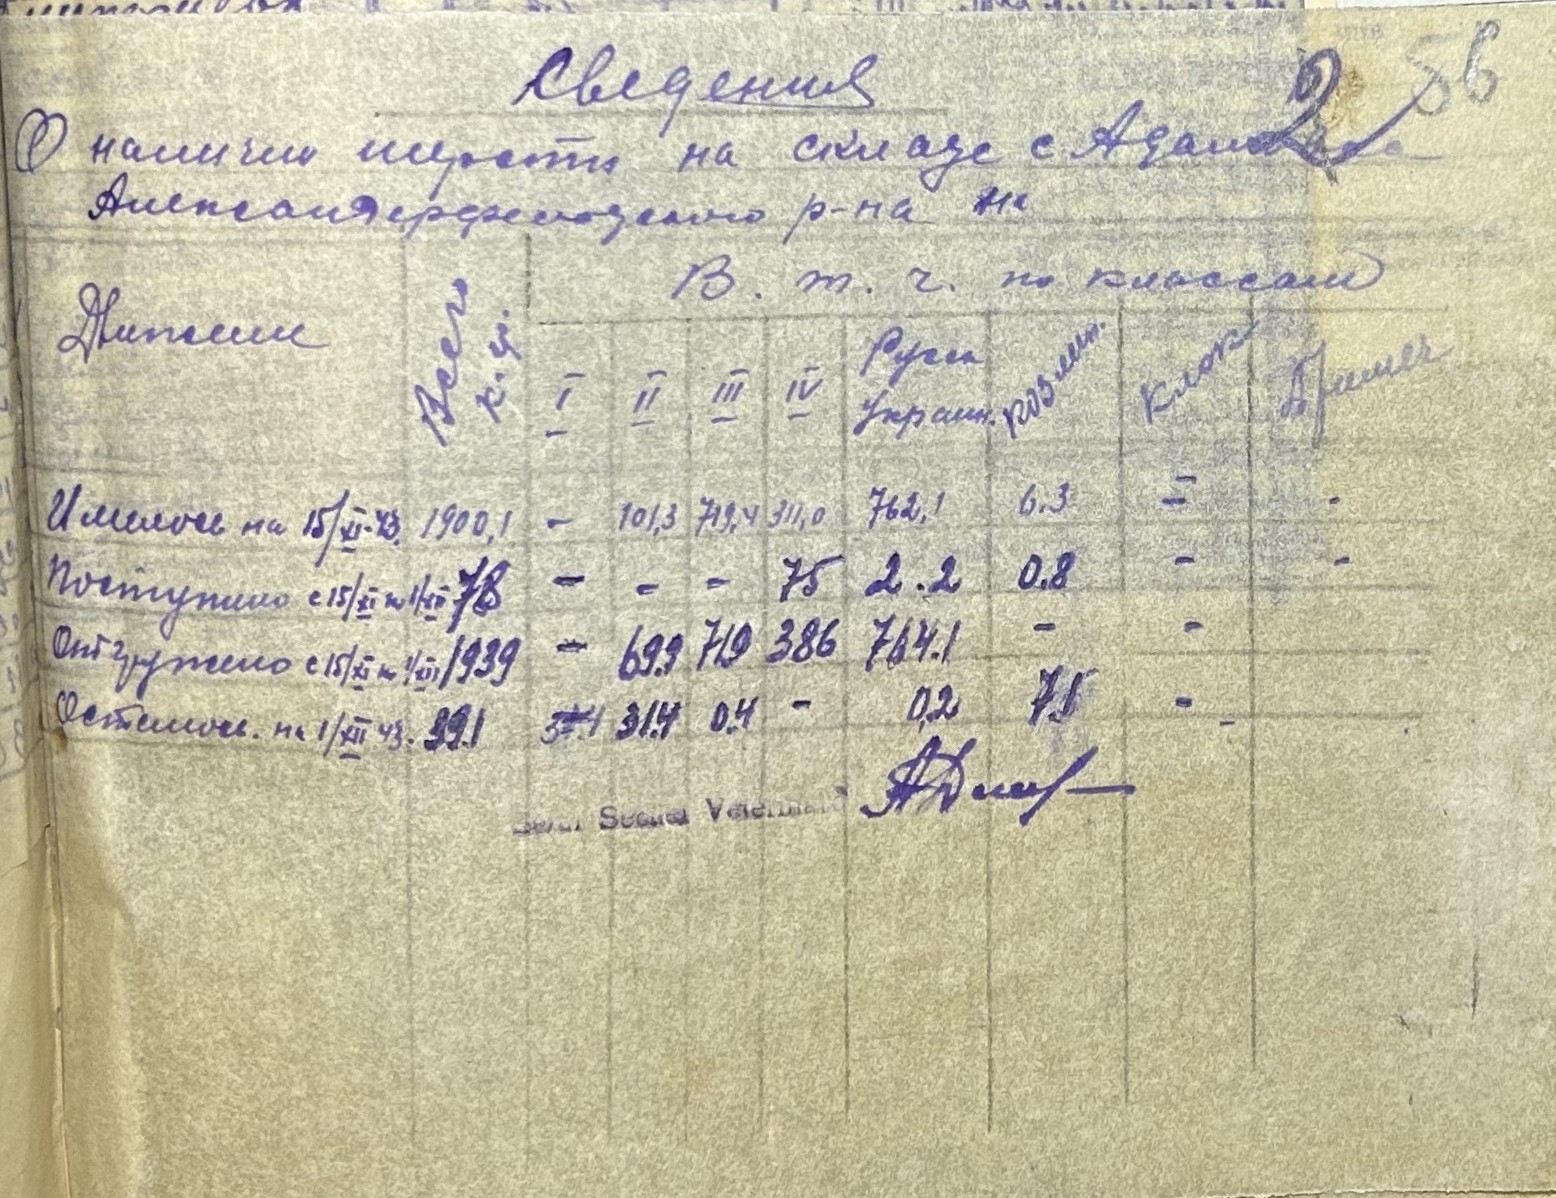 56
2
Сведения
О наличии шерсти на складе с Адамовка
Александерфельдского р-на на
Движение
Всего к-г.
В. т. ч. по классам
I II III IV Русск Украин. козлин. Клок
Имелось на 15/XI-43. 1900,1 - 101,3 719,4 311,0 762,1 6.3 = -
Поступило с 15/XI по 1/XII 78 - - - 75 2.2 0.8 - -
Отгружено с 15/XI по 1/XII 1939 - 69.9 719 386 764.1 - -
Осталось на 1/XII 43. 39.1 31.4 0.4 - 0.2 7.1 - -